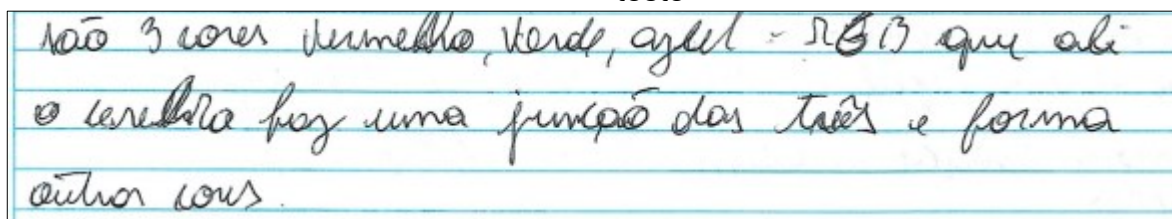 são 3 cores vermelho, verde, azul - RGB que ali
o cerebro faz uma junção das três e forma
outras cores.